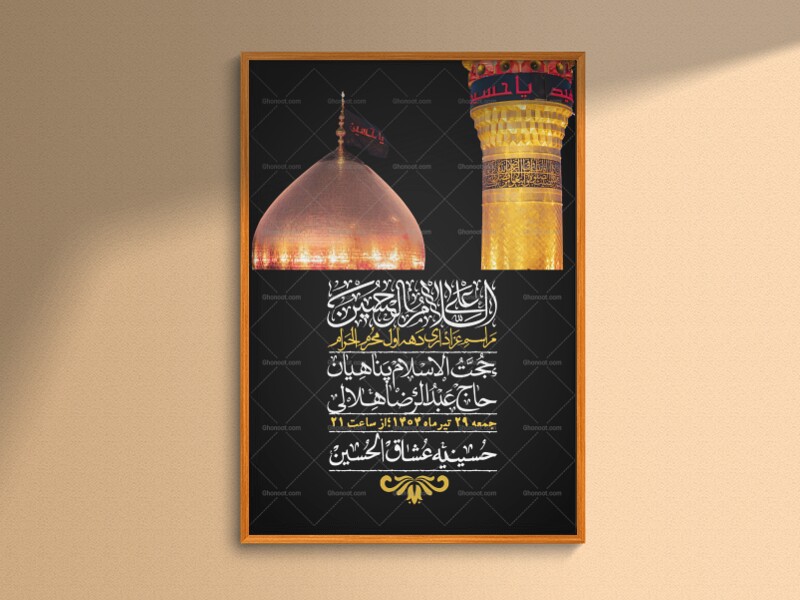 یا حسین
یا حسین
السلام علی الحسین
مراسم عزاداری دهه اول محرم الحرام
حجت الاسلام پناهیان
حاج عبدالرضا هلالی
جمعه ۲۹ تیرماه ۱۴۰۴؛از ساعت ۲۱
حسینیه عشاق الحسین
Ghonoot.com